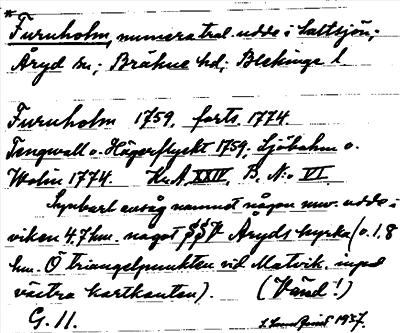 * Furuholm, numera tral. udde i Saltsjön;
Åryd sn; Bräkne hd; Blekinge l
Furuholm 1759, forts. 1774
Tengwall o. Hägerflyckt 1759, Sjöbohm o.
Wolin 1774. Kr.A. XXIV, B. N:o VI
Synbart avsåg namnet någon nuv. udde i
viken 4.7 km. något SSV Åryds kyrka (o. 1.8
km. Ö triangelpunkten vid Matvik, invid
västra kartkanten). (Vänd!)
G. 11. 1937.